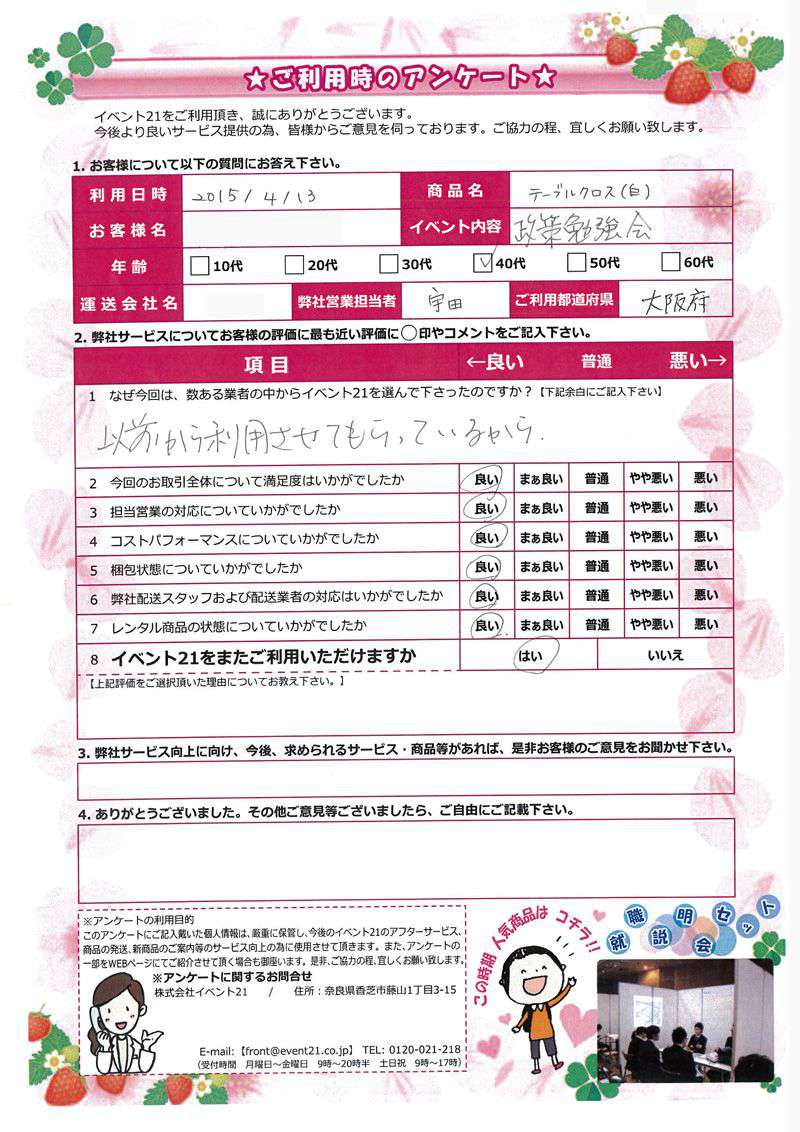 ★ご利用時のアンケート★
イベント21をご利用頂き、誠にありがとうございます。
今後より良いサービス提供の為、皆様からご意見を伺っております。ご協力の程、宜しくお願い致します。
1. お客様について以下の質問にお答え下さい。
利用日時 2015/4/13 商品名 テーブルクロス(白)
お客様名 イベント内容 政策勉強会
年齢 10代 20代 30代 40代 50代 60代
運送会社名 弊社営業担当者 宇田 ご利用都道府県 大阪府
2. 弊社サービスについてお客様の評価に最も近い評価に○印やコメントをご記入下さい。
項目 ←良い 普通 悪い→
1 なぜ今回は、数ある業者の中からイベント21を選んで下さったのですか?【下記余白にご記入下さい】
以前から利用させてもらっているから.
2 今回のお取引全体について満足度はいかがでしたか 良い まぁ良い 普通 やや悪い 悪い
3 担当営業の対応についていかがでしたか 良い まぁ良い 普通 やや悪い 悪い
4 コストパフォーマンスについていかがでしたか 良い まぁ良い 普通 やや悪い 悪い
5 梱包状態についていかがでしたか 良い まぁ良い 普通 やや悪い 悪い
6 弊社配送スタッフおよび配送業者の対応はいかがでしたか 良い まぁ良い 普通 やや悪い 悪い
7 レンタル商品の状態についていかがでしたか 良い まぁ良い 普通 やや悪い 悪い
8 イベント21をまたご利用いただけますか はい いいえ
【上記評価をご選択頂いた理由についてお教え下さい。】
3. 弊社サービス向上に向け、今後、求められるサービス・商品等があれば、是非お客様のご意見をお聞かせ下さい。
4. ありがとうございました。その他ご意見等ございましたら、ご自由にご記載下さい。
※アンケートの利用目的
このアンケートにご記入戴いた個人情報は、厳重に保管し、今後のイベント21のアフターサービス、
商品の発送、新商品のご案内等のサービス向上の為に使用させて頂きます。また、アンケートの
一部をWEBページにてご紹介させて頂く場合も御座います。是非、ご協力の程、宜しくお願い致します。
※アンケートに関するお問合せ
株式会社イベント21 / 住所:奈良県香芝市藤山1丁目3-15
E-mail:【front@event21.co.jp】 TEL: 0120-021-218
(受付時間 月曜日～金曜日 9時～20時半 土日祝 9時～17時)
この時期 人気商品は コチラ!!
就職説明会セット